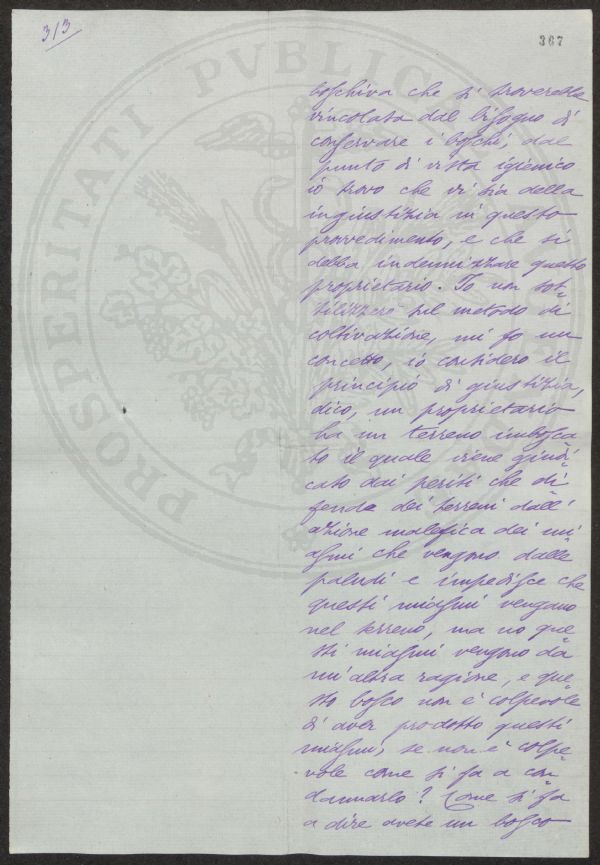 313
367
PROSPERITATI PVBLICAE
boschiva che si troverebbe
vincolata dal bisogno di
conservare i boschi; dal
punto di vista igienico
io trovo che vi sia della
ingiustizia in questo
provvedimento, e che si
debba indennizzare questo
proprietario. Io non sot=
tilizzerò sul metodo di
coltivazione, mi fo un
concetto, io considero il
principio di giustizia,
dico, un proprietario
ha un terreno imbosca=
to il quale viene giudi=
cato dai periti che di=
fenda dei terreni dall'
azione malefica dei mi=
asmi che vengono dalle
paludi e impedisce che
questi miasmi vengano
nel terreno, ma no que=
sti miasmi vengono da
un'altra ragione, e que=
sto bosco non è colpevole
di aver prodotto questi
miasmi, se non è colpe=
vole come si fa a con=
dannarlo? Come si fa
a dire avete un bosco